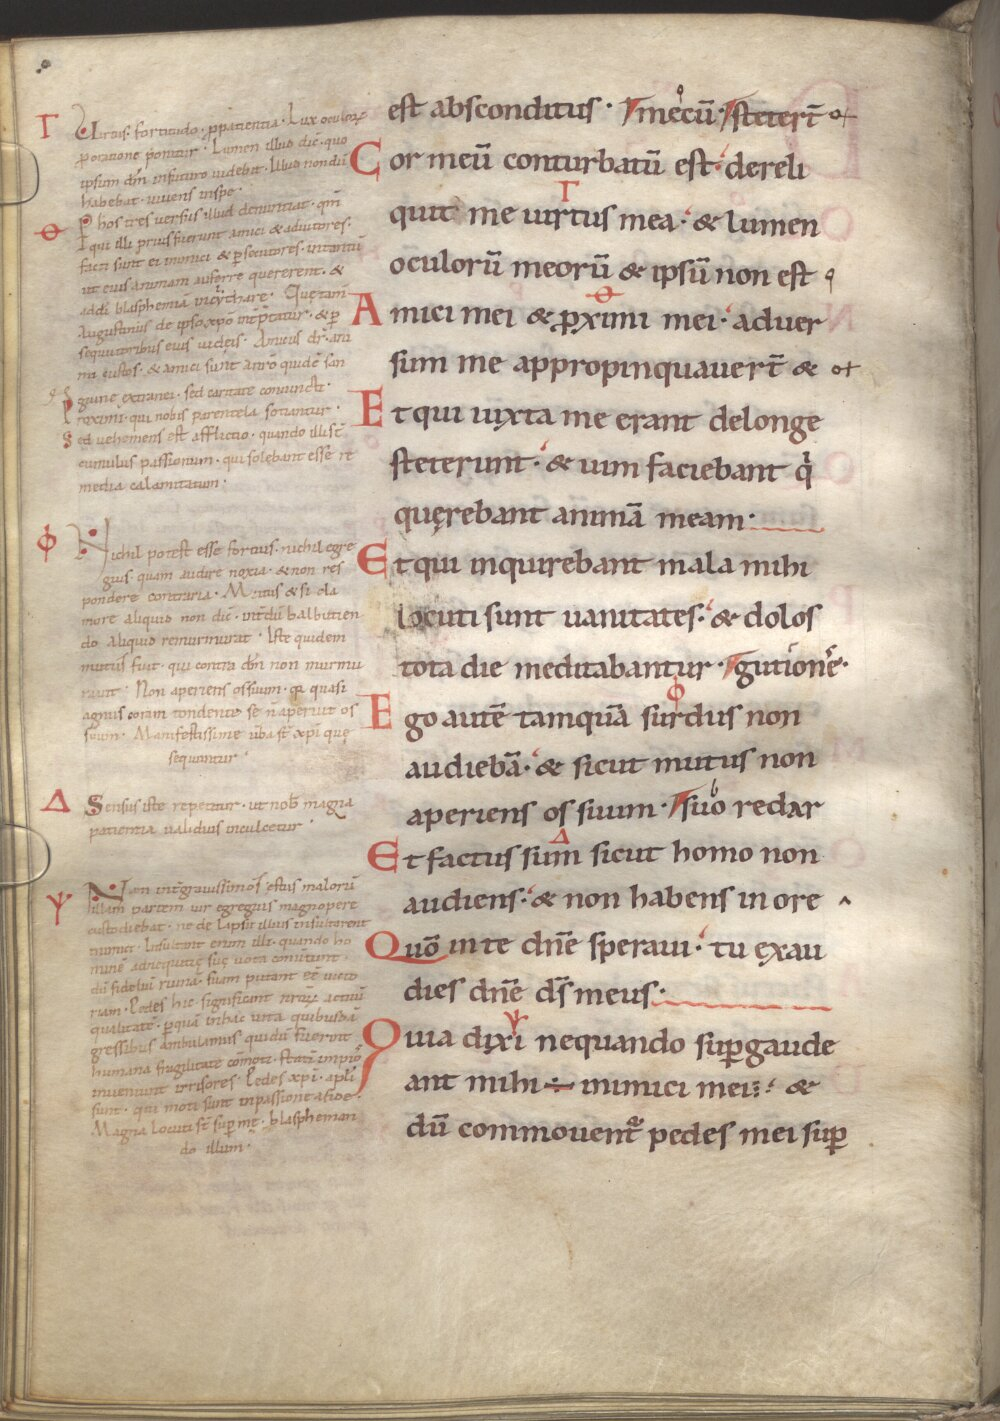 est absconditus · mecū · stetert̄
Cor meū conturbatū est · dereli
quit me uirtus mea · & lumen
oculorū meorū & ipsū non est
Amici mei & ꝓximi mei · aduer
sum me appropinquauert̄ &
Et qui iuxta me erant de longe
steterunt · & uim faciebant q̇
quęrebant animā meam ·
Et qui inquirebant mala mihi
locuti sunt uanitates · & dolos
tota die meditabantur · gutionē ·
Ego autē tamquā surdus non
audiebā · & sicut mutus non
aperiens os suum · suo redar
Et factus sum sicut homo non
audiens · & non habens in ore
Quō in te dn̄e speraui · tu exau
dies dn̄e ds̄ meus ·
Quia dixi nequando suꝑgaude
ant mihi ÷ inimici mei : · &
dū commouent̄ pedes mei suꝑ
Γ Uirtus · fortitudo · ꝓ patientia · Lux oculorꝝ
ꝓ oratione ponitur · Lumen illud diē · quo
ipsum dn̄m in futuro uidebit · Illud nondū
habebat · uiuens in spe ·
Θ Phos tres uersus illud denuntiat · qm̄
qui illi prius fuerunt amici & adiutores ·
facti sunt ei inimici & ꝑsecutores · in tantū
ut eius animam auferre quererent · &
Augustinus de ipso xp̄o
sequitoribus eius
guine extranei · sed caritate coniuncti ·
Proximi · qui nobis parentela sotiantur ·
Sed uehemens est afflictio · quando illi st̄
cumulus passionum · qui solebant esse re
media calamitatum ·
Φ Nichil potest esse fortius · nichil egre
gius · quam audire noxia · & non res
pondere contraria · Mutus & si cla
more aliquid non dic̄ · int̄dū balbutien
do aliquid remurmurat · Iste quidem
mutus fuit · qui contra dn̄m non murmu
rauit · Non aperiens os suum · quasi
agnus coram tondente se n̄ aperuit os
suum · Manifestissime uba st̄ xp̄i quę
sequuntur ·
Δ Sensus iste repetitur · ut nob̄ magna
patientia ualidius inculcetur ·
Ψ Nam int̄ grauissimos estus malorū
illam partem uir egregius magnopere
custodiebat · ne de lapsu illius insultarent
inimici · Insultant enim illi · quando ho
dū fidelium ruinā · suam putant eē uicto
riam · Pedes hic significant nr̄orꝝ actuū
qualitatē · ꝑ quā in hac uita quibusdā
gressibus ambulamus qui dū fuerint
humana fragilitate cōmoti · statim impio
inueniunt irrisores · Pedes xp̄i · apl̄i
sunt · qui moti sunt in passione a fide ·
Magna locuti st̄ suꝑ me · blapheman
do illum ·